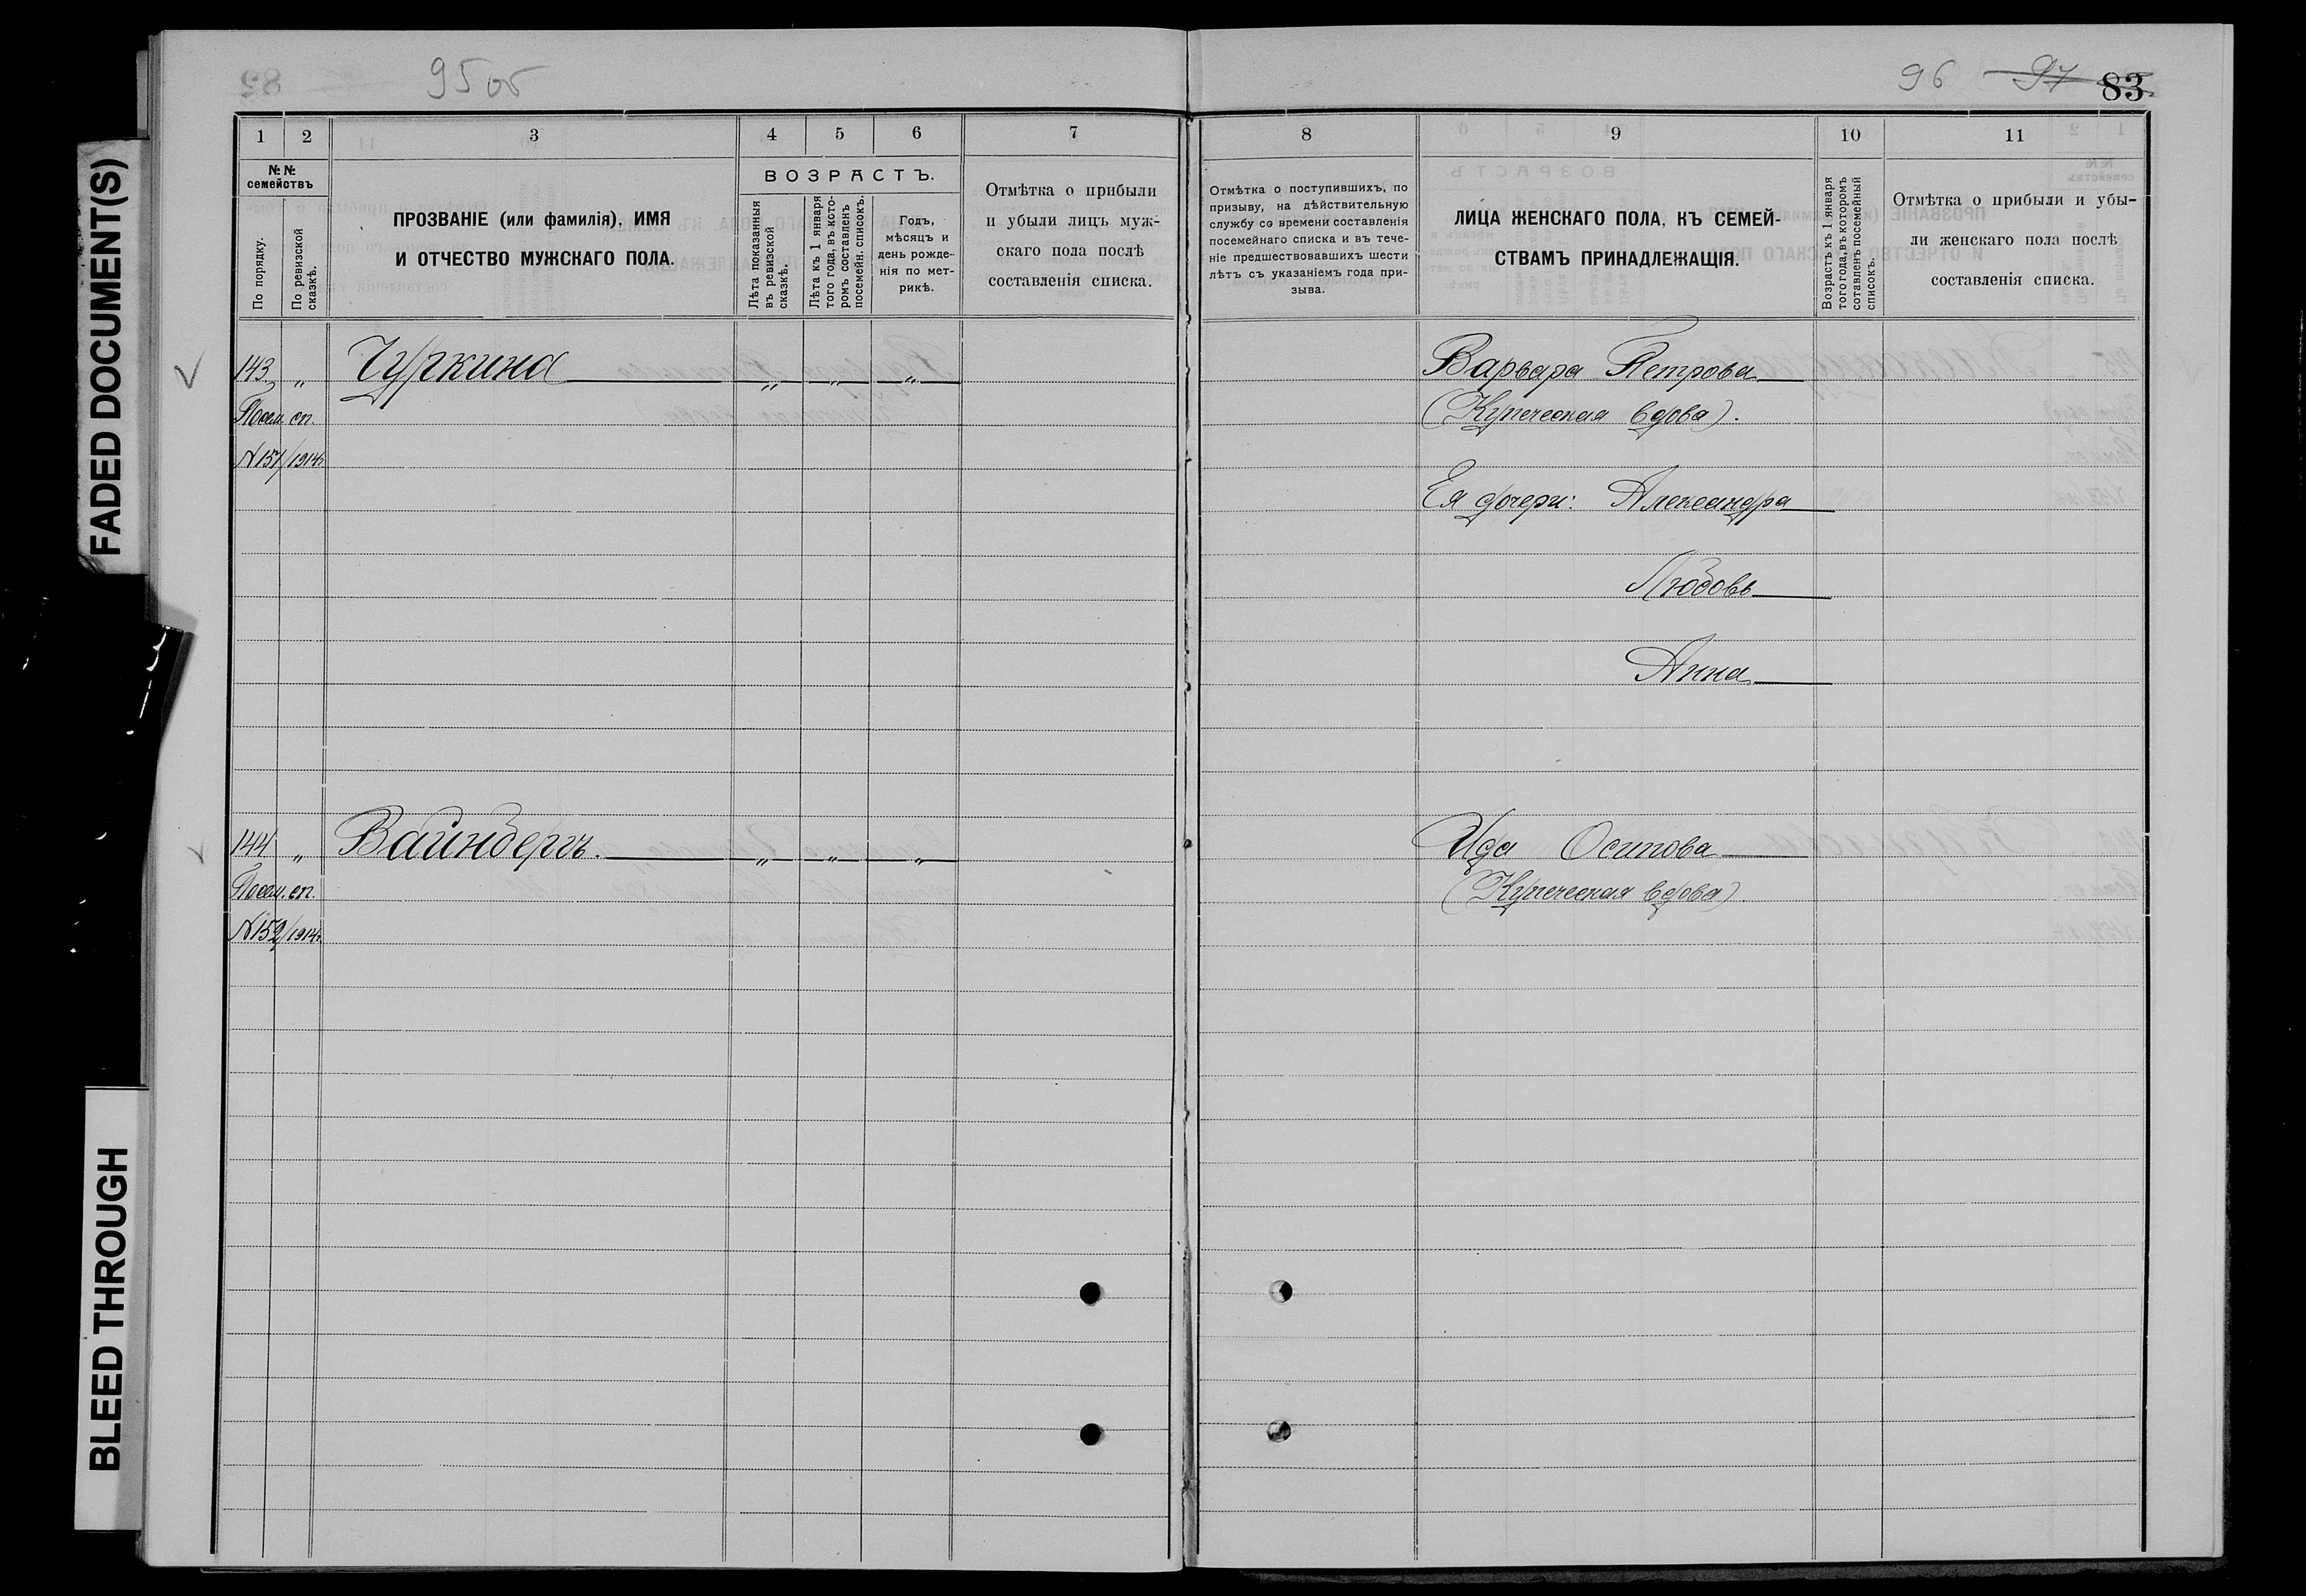 FADED DOCUMENT(S)
BLEED THROUGH
95 об
96 97 83
1 2 3 4 5 6 7
№№ семействъ
По порядку.
По ревизской сказкѣ.
ПРОЗВАНІЕ (или фамилія), ИМЯ
И ОТЧЕСТВО МУЖСКАГО ПОЛА.
ВОЗРАСТЪ.
Лѣта показанныя
въ ревизской
сказкѣ.
Лѣта къ 1 января
того года, въ кото-
ромъ составленъ
посемейн. списокъ.
Годъ,
мѣсяцъ и
день рожде-
нія по мет-
рикѣ.
Отмѣтка о прибыли
и убыли лицъ муж-
скаго пола послѣ
составленія списка.
8 9 10 11
Отмѣтка о поступившихъ, по
призыву, на дѣйствительную
службу со времени составленія
посемейнаго списка и въ тече-
ніе предшествовавшихъ шести
лѣтъ съ указаніемъ года при-
зыва.
ЛИЦА ЖЕНСКАГО ПОЛА, КЪ СЕМЕЙ-
СТВАМЪ ПРИНАДЛЕЖАЩІЯ.
Возрастъ къ 1 января
того года, въ которомъ
сотавленъ посемейный
списокъ.
Отмѣтка о прибыли и убы-
ли женскаго пола послѣ
составленія списка.
143 „ Чуркина „ „ „ Варвара Петрова
Посем. сп. (Купеческая вдова).
№151/1914г.
Ея дочери: Александра
Любовь
Анна
144 „ Вайнбергъ. „ „ „ Ида Осипова
Посем. сп. (Купеческая вдова).
№152/1914г.